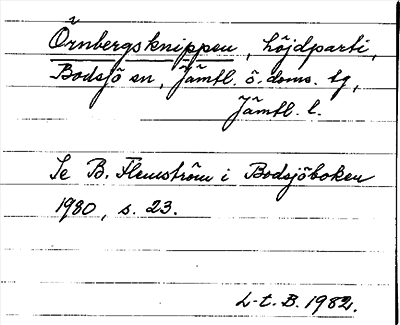 Örnbergsknippen, höjdparti,
Bodsjö sn, Jämtl. ö. doms. tg,
Jämtl. l.
Se B. Flemström i Bodsjöboken
1980, s. 23.
L-t. B. 1982.